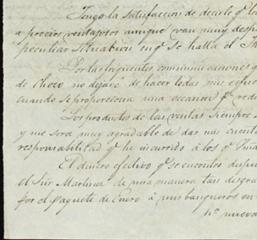 Tengo la satisfaccion de decirle qe
a precios ventajosos aunque van muy
peculiar situacion en qe se halla el
Por las siguientes comunicaciones
de Choco no dejaré de hacer todos mis
cuando se proporciona una ocasion qe
Los productos de las ventas siempre
y me será muy agradable de dar más cuenta
responsabilidad qe he incurrido á los
El dinero efectivo qe se encontró
el Sür Martinez de una manera tan
for el paquete de Enero á mis banqueros en